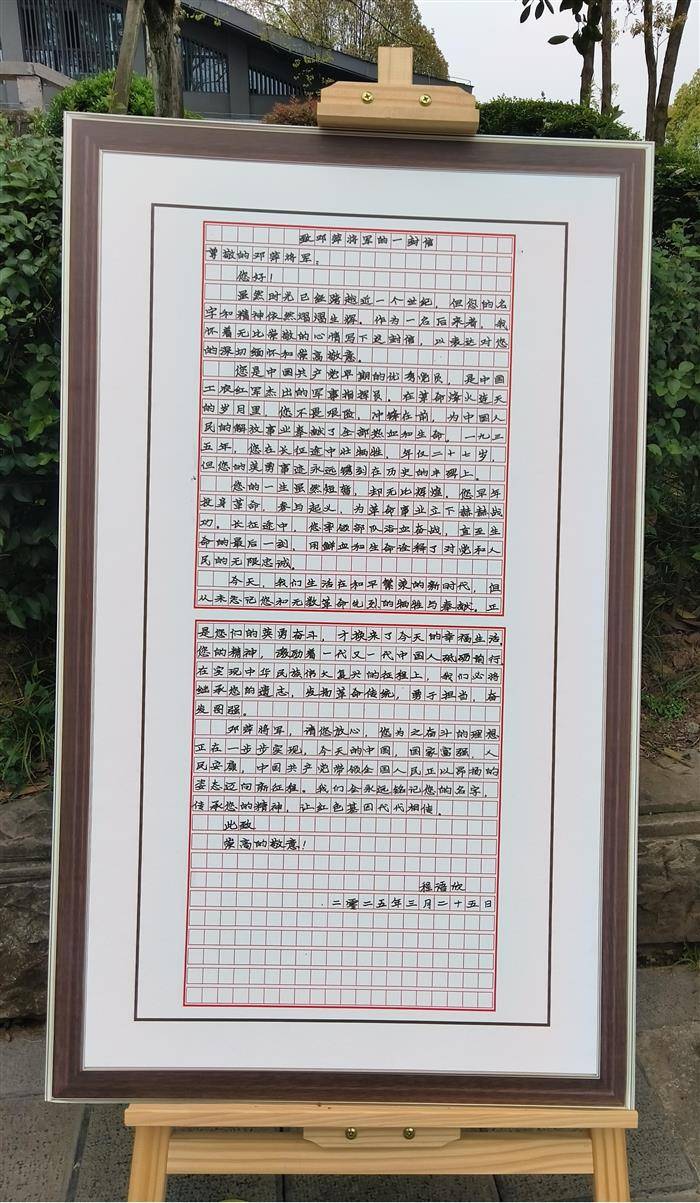 致邓萍将军的一封信
尊敬的邓萍将军：
您好！
虽然时光已经跨越近一个世纪，但您的名
字和精神依然熠熠生辉。作为一名后来者，我
怀着无比崇敬的心情写下这封信，以表达对您
的深切缅怀和崇高敬意。
您是中国共产党早期的优秀党员，是中国
工农红军杰出的军事指挥员。在革命烽火连天
的岁月里，您不畏艰险，冲锋在前，为中国人
民的解放事业奉献了全部热血和生命。一九三
五年，您在长征途中壮烈牺牲，年仅二十七岁，
但您的英勇事迹永远镌刻在历史的丰碑上。
您的一生虽然短暂，却无比辉煌，您早年
投身革命，参与起义，为革命事业立下赫赫战
功。长征途中，您率领部队浴血奋战，直至生
命的最后一刻，用鲜血和生命诠释了对党和人
民的无限忠诚。
今天，我们生活在和平繁荣的新时代，但
从未忘记您和无数革命先烈的牺牲与奉献。正
是您们的英勇奋斗，才换来了今天的幸福生活。
您的精神，激励着一代又一代中国人砥砺前行。
在实现中华民族伟大复兴的征程上，我们必将
继承您的遗志，发扬革命传统，勇于担当，奋
发图强。
邓萍将军，请您放心，您为之奋斗的理想
正在一步步实现，今天的中国，国家富强，人
民安康，中国共产党带领全国人民正以昂扬的
姿态迈向新征程。我们会永远铭记您的名字，
传承您的精神，让红色基因代代相传。
此致
崇高的敬意！
程语欣
二零二五年三月二十五日